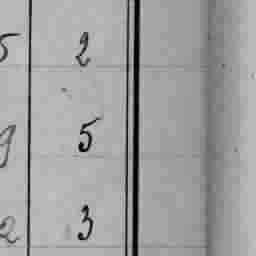 5 2
9 5
2 3